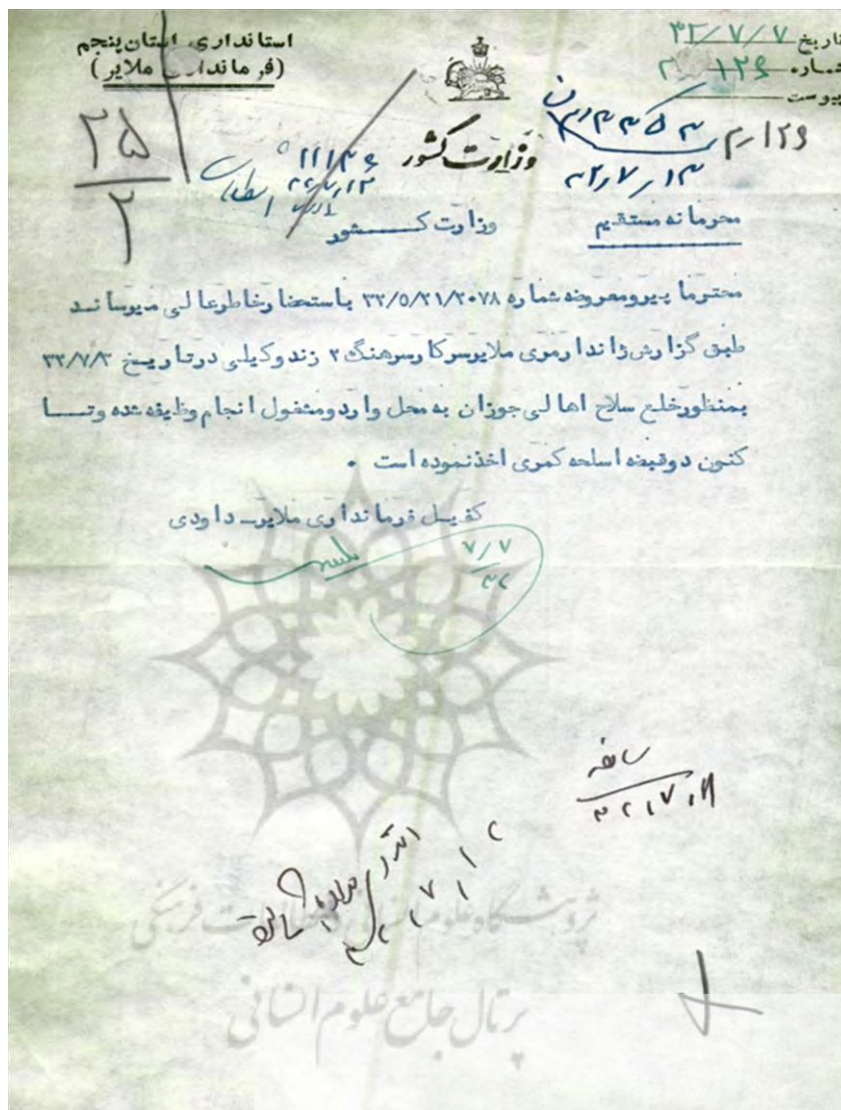 استانداری استان پنجم
(فرمانداری ملایر)
وزارت کشور
تاریخ ۳۲/۷/۷
شماره ۱۲۶
پیوست
۲۵
۲
۱۲۶/م
۳۲/۷/۱۳
محرمانه مستقیم
وزارت کـــــشور
محترما پیرومعروضه شماره ۳۲/۵/۲۱/۲۰۷۸ باستحضارخاطرعالی میرساند
طبق گزارش ژاندارمری ملایرسرکارسرهنگ ۲ زندوکیلی درتاریخ ۳۲/۷/۲
بمنظورخلع سلاح اهالی جوزان به محل واردومشغول انجام وظیفه شده وتـــا
کنون دوقبضه اسلحه کمری اخذنموده است .
کفیل فرمانداری ملایرـ داودی
۷/۷
۳۲
سابقه
پژوهشگاه علوم انسانی و مطالعات فرهنگی
پرتال جامع علوم انسانی